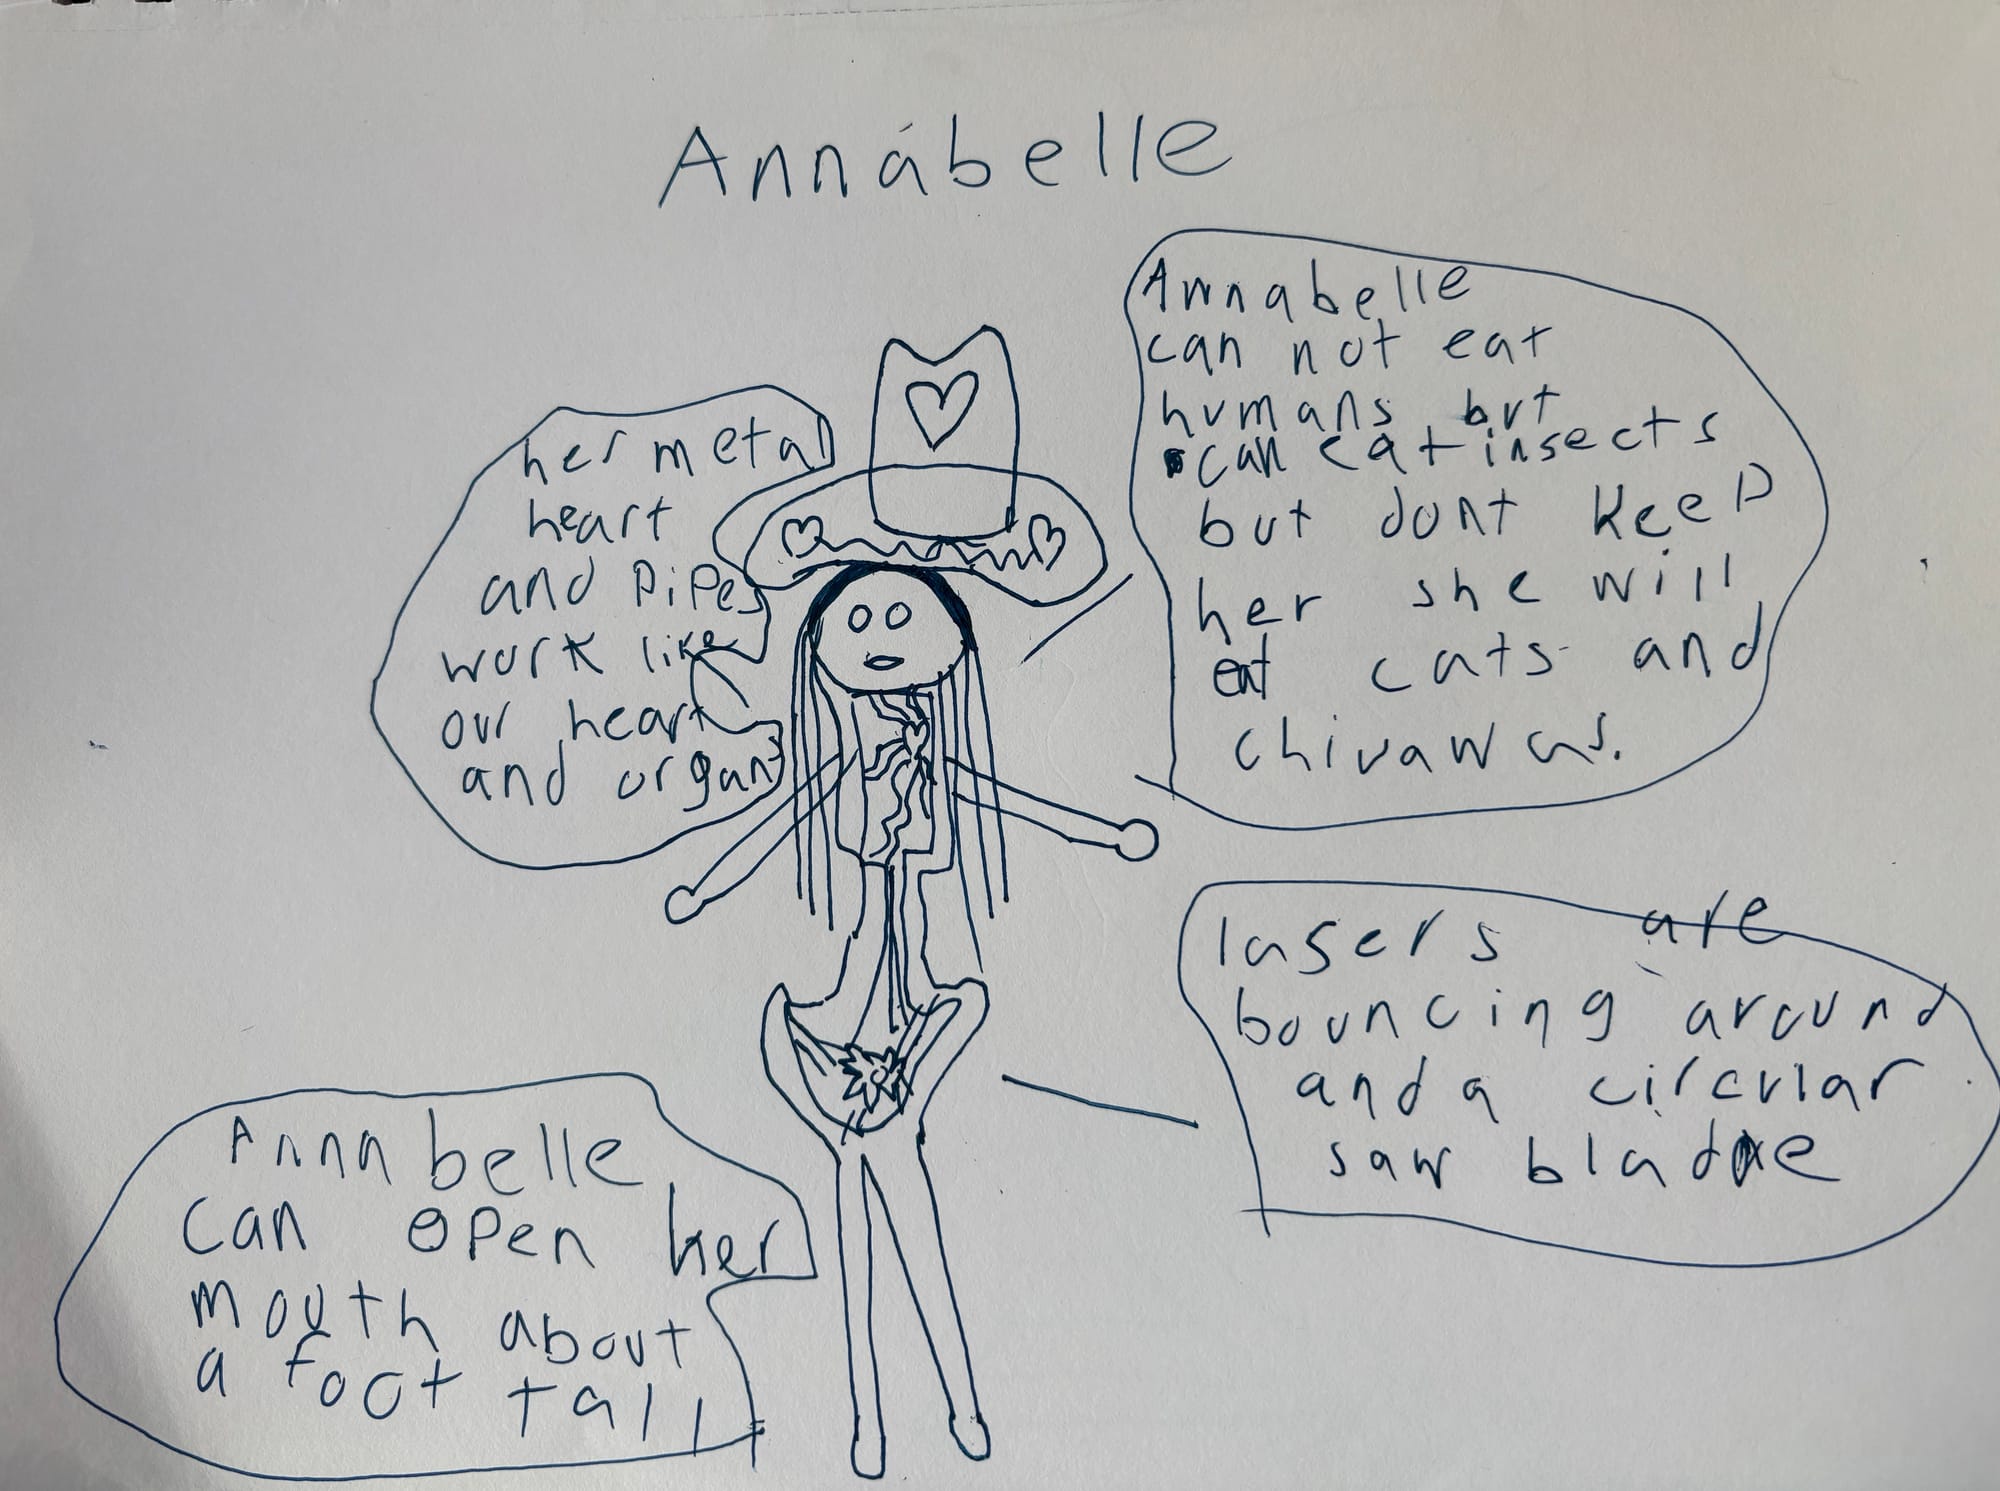 Annabelle
her metal
heart
and pipes
work like
our heart
and organs
Annabelle
can not eat
humans but
can eat insects
but dont keep
her she will
eat cats and
chivawas.
lasers are
bouncing around
and a circular
saw blade
Annabelle
can open her
mouth about
a foot tall